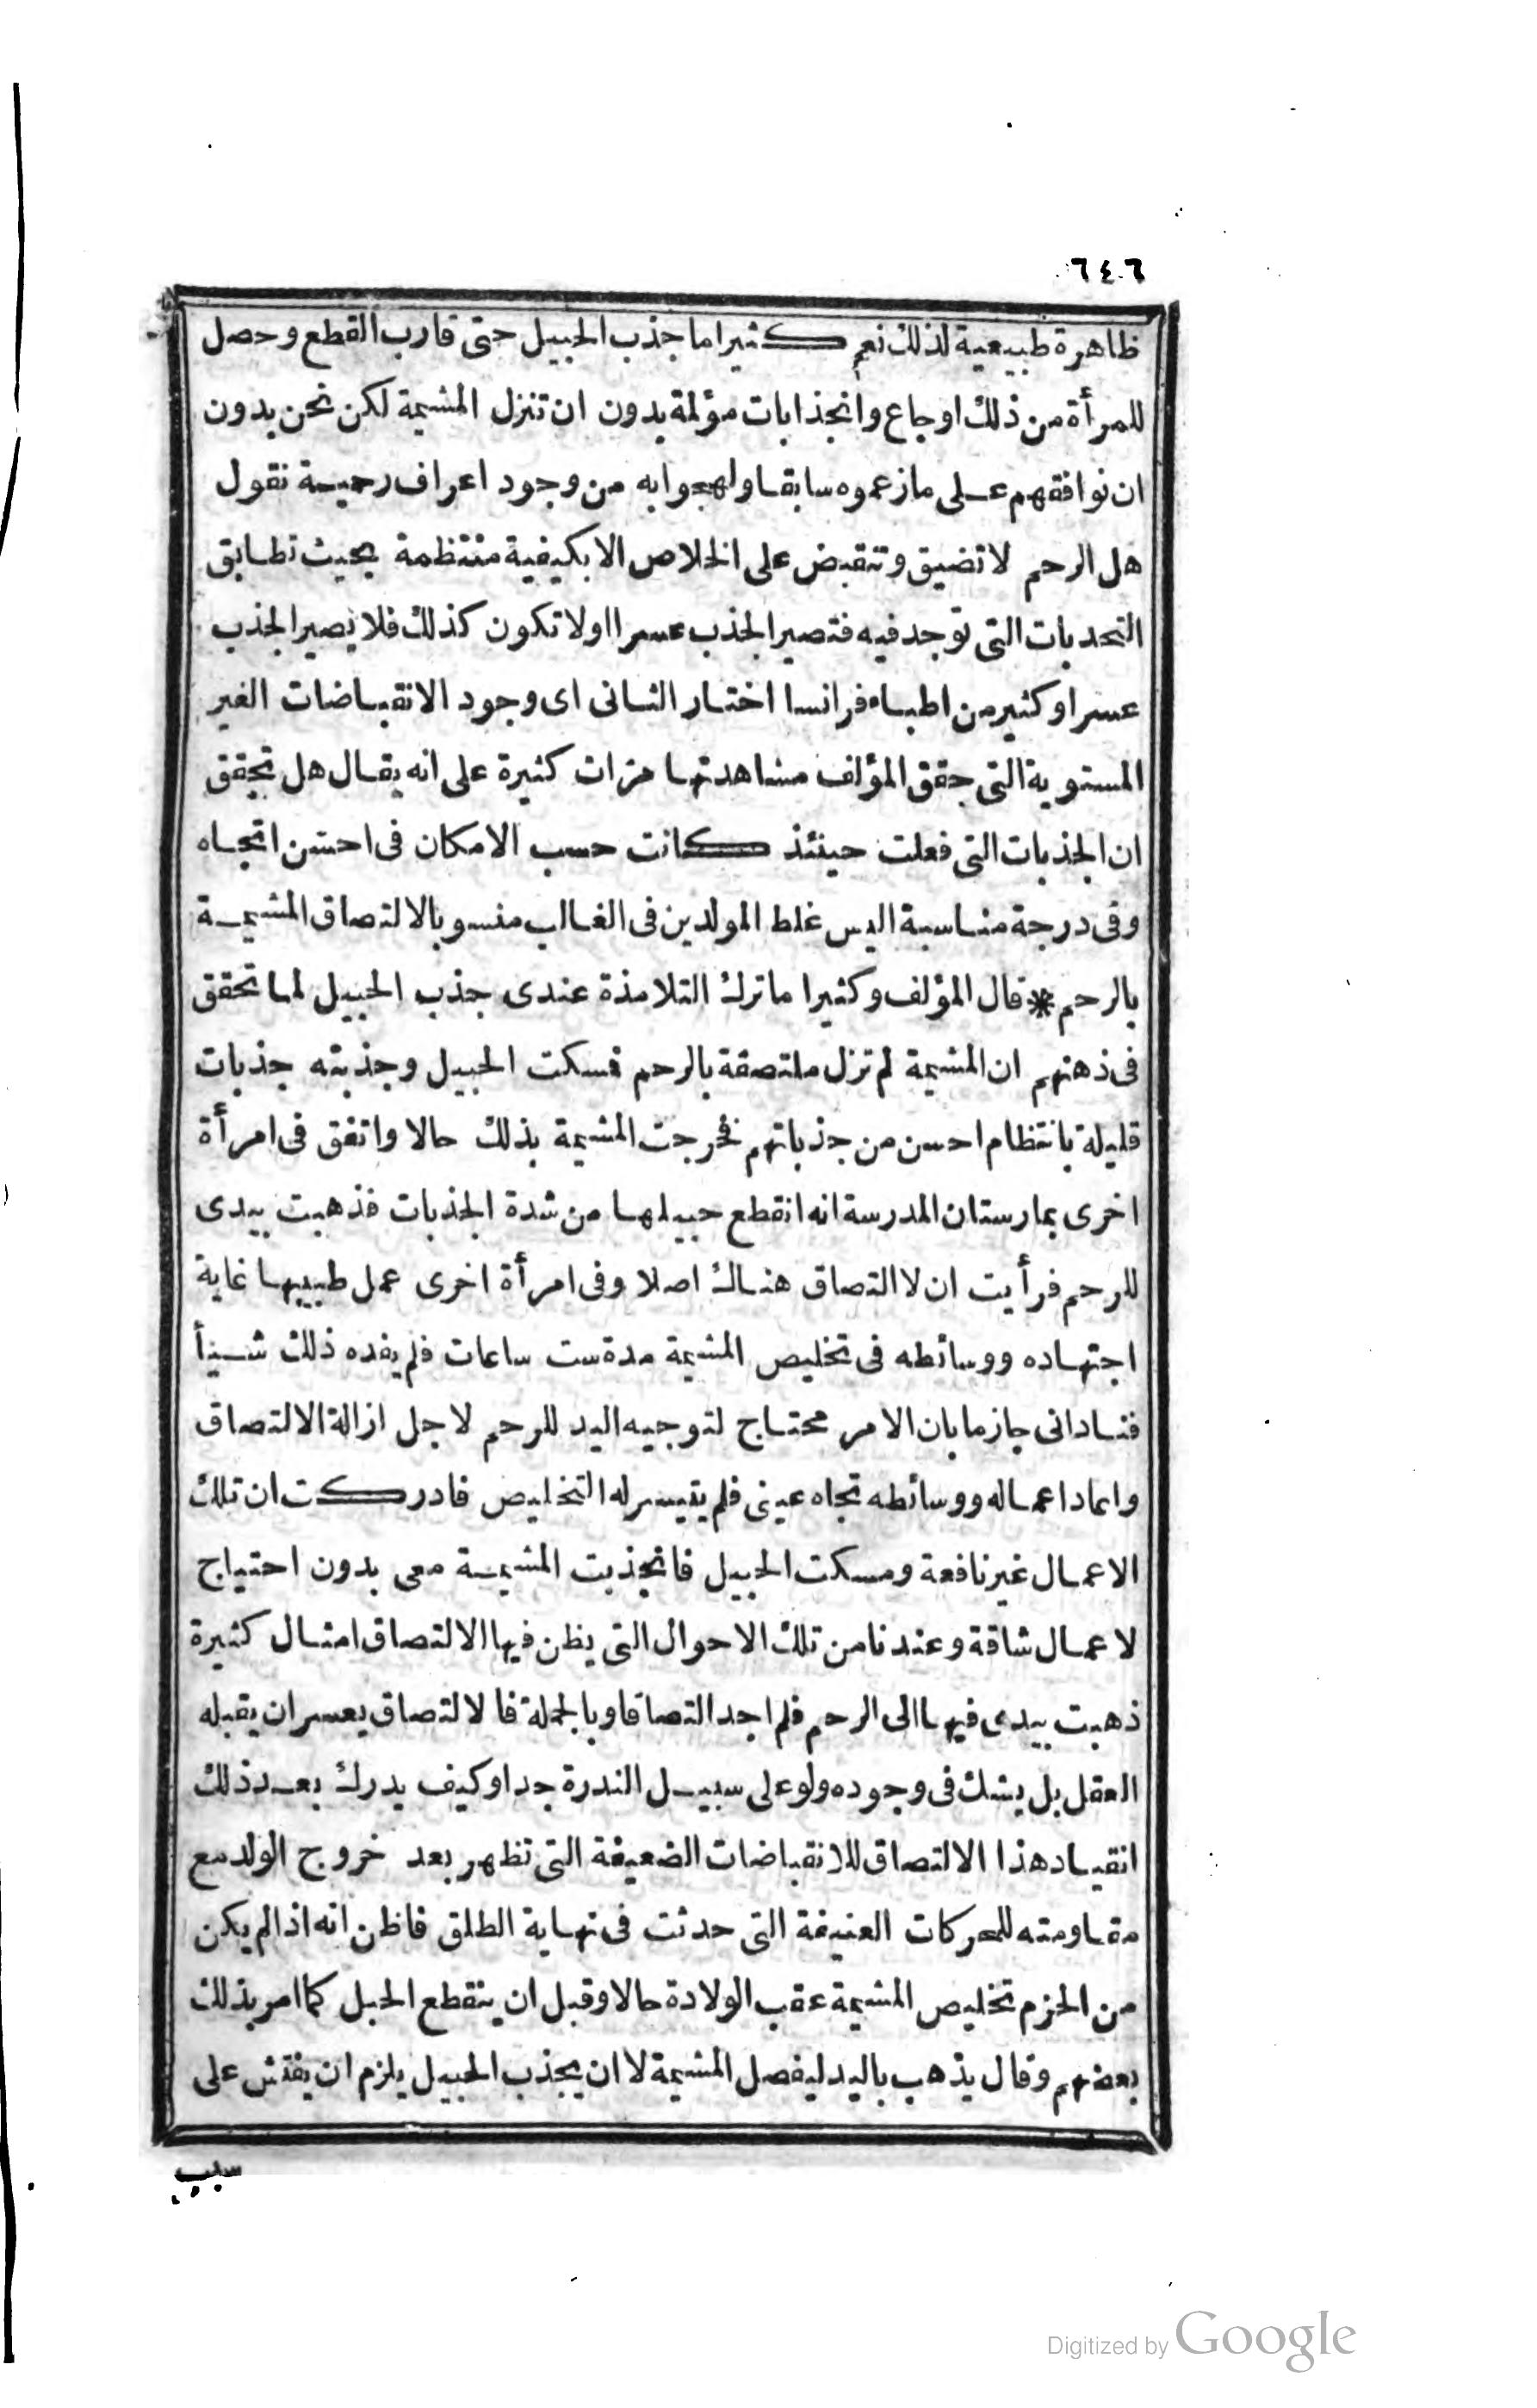 ٦٤٦
ظاهرة طبيعية لذلك نعم كثيرا ما جذب الحبيل حتى قارب القطع وحصل
للمرأة من ذلك اوجاع وانجذابات مؤلمة بدون ان تنزل المشيمة لكن نحن بدون
ان نوافقهم على ما زعموه سابقا ولهجوا به من وجود اعراف رحمية نقول
هل الرحم لا تضيق وتنقبض على الخلاص الا بكيفية منتظمة بحيث تطابق
التحدبات التى توجد فيه فتصير الجذب عسرا اولا تكون كذلك فلا يصير الجذب
عسرا وكثير من اطباء فرانسا اختار الثانى اى وجود الانقباضات الغير
المستوية التى حقق المؤلف مشاهدتها مرات كثيرة على انه يقال هل تحقق
ان الجذبات التى فعلت حينئذ كانت حسب الامكان فى احسن اتجاه
وفى درجة مناسبة اليس غلط المولدين فى الغالب منسوبا لالتصاق المشيمة
بالرحم * قال المؤلف وكثيرا ما ترك التلامذة عندى جذب الحبيل لما تحقق
فى ذهنهم ان المشيمة لم تزل ملتصقة بالرحم فسكت الحبيل وجذبته جذبات
قليلة بانتظام احسن من جذباتهم فخرجت المشيمة بذلك حالا واتفق فى امرأة
اخرى بمارستان المدرسة انه انقطع حبيلها من شدة الجذبات فذهبت بيدى
للرحم فرأيت ان لا التصاق هناك اصلا وفى امرأة اخرى عمل طبيبها غاية
اجتهاده ووسائطه فى تخليص المشيمة مدة ست ساعات فلم يفده ذلك شيأ
فنادانى جازما بان الامر محتاج لتوجيه اليد للرحم لاجل ازالة الالتصاق
واعاد اعماله ووسائطه تجاه عينى فلم يتيسر له التخليص فادركت ان تلك
الاعمال غير نافعة ومسكت الحبيل فانجذبت المشيمة معى بدون احتياج
لاعمال شاقة وعندنا من تلك الاحوال التى يظن فيها الالتصاق امثال كثيرة
ذهبت بيدى فيها الى الرحم فلم اجد التصاقا وبالجملة فالالتصاق يعسر ان يقبله
العقل بل يشك فى وجوده ولو على سبيل الندرة جدا وكيف يدرك بعد ذلك
انقياد هذا الالتصاق للانقباضات الضعيفة التى تظهر بعد خروج الولد مع
مقاومته للحركات العنيفة التى حدثت فى نهاية الطلق فاظن انه اذا لم يكن
من الحزم تخليص المشيمة عقب الولادة حالا وقبل ان ينقطع الحبل كما امر بذلك
بعضهم وقال يذهب باليد ليفصل المشيمة لا ان يجذب الحبيل يلزم ان يفتش على
سبب
Digitized by Google